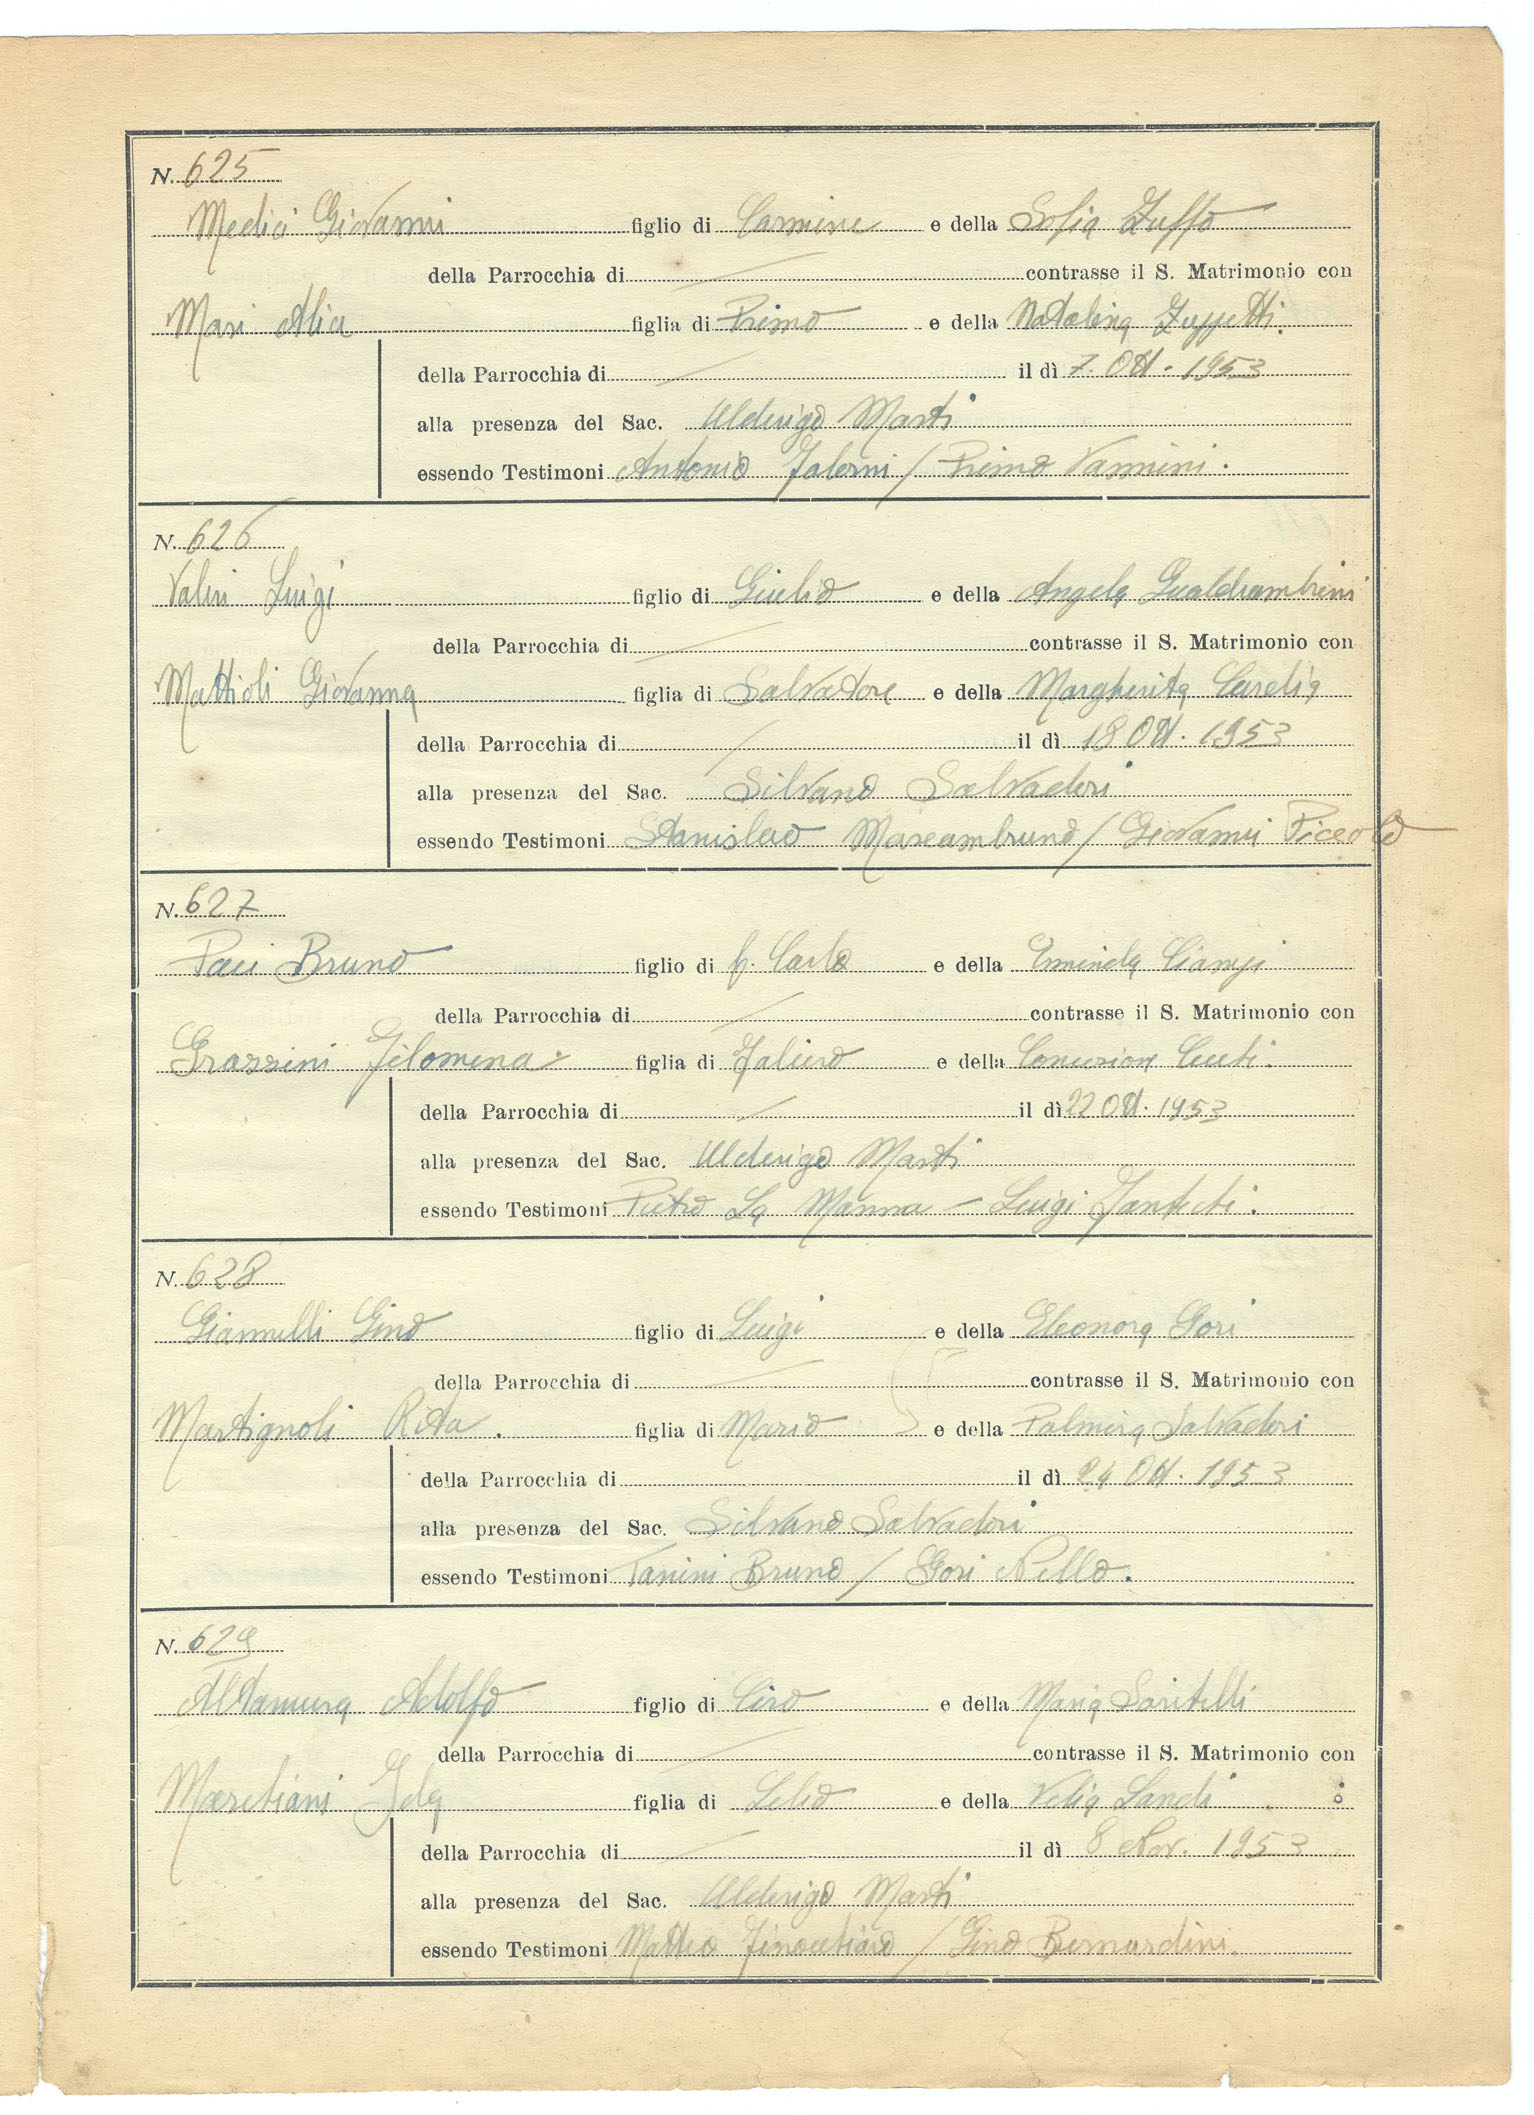 N. 625
Medici Giovanni figlio di Carmine e della Sofia Zuffo
della Parrocchia di / contrasse il S. Matrimonio con
Masi figlia di Primo e della Natalina
della Parrocchia di / il dì 7. Ott. 1953
alla presenza del Sac. Ulderigo Masti
essendo Testimoni Antonio Falorni / Primo Vannini.
N. 626
Valin Luigi figlio di Giulio e della Angela Gualdrambrini
della Parrocchia di / contrasse il S. Matrimonio con
Mattioli Giovanna figlia di Salvatore e della Margherita
della Parrocchia di / il dì 18 Ott. 1953
alla presenza del Sac. Silvano Salvadori
essendo Testimoni Stanislao Mascambruno / Giovanni Piccolo
N. 627
Paci Bruno figlio di f. Carlo e della Erminda Ciampi
della Parrocchia di / contrasse il S. Matrimonio con
Grassini Filomena. figlia di Faliero e della Concezione
della Parrocchia di / il dì 22 Ott. 1953
alla presenza del Sac. Ulderigo Masti
essendo Testimoni Pietro La Manna – Luigi
N. 628
Giannelli Gino figlio di Luigi e della Eleonora Gori
della Parrocchia di / contrasse il S. Matrimonio con
Martignoli Rita. figlia di Mario e della Palmira Salvadori
della Parrocchia di il dì 24 Ott. 1953
alla presenza del Sac. Silvano Salvadori
essendo Testimoni Tanini Bruno / Gori Nello.
N. 629
Altamura Adolfo figlio di Ciro e della Maria Santelli
della Parrocchia di / contrasse il S. Matrimonio con
Marchiani Ida figlia di Lelio e della Velia Landi
della Parrocchia di / il dì 8 Nov. 1953
alla presenza del Sac. Ulderigo Masti
essendo Testimoni Matteo Finocchiaro / Gino Bernardini.